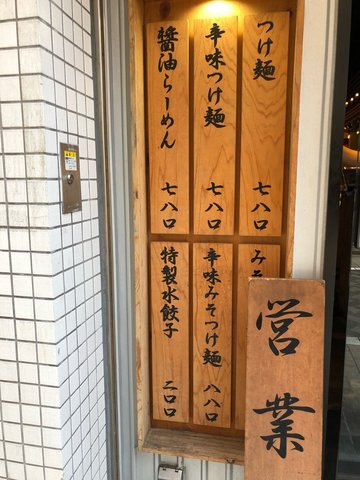 つけ麺 七八〇
辛味つけ麺 七八〇
醤油らーめん 七八〇
みそ
辛味みそつけ麺 八八〇
特製水餃子 二〇〇
営業